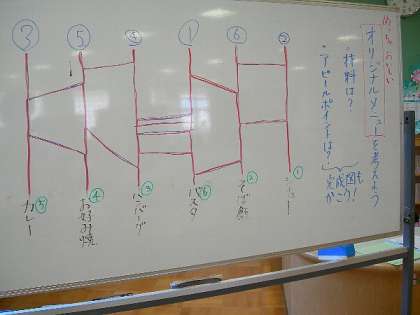 めっちゃおいしい
オリジナルメニューを考えよう
・材料は?
・アピールポイントは?
完成図も
かこう!
③ ⑤ ④ ① ⑥ ②
①
② そば飯
⑥ パスタ
③ ハンバーグ
④ お好み焼
⑤ カレー